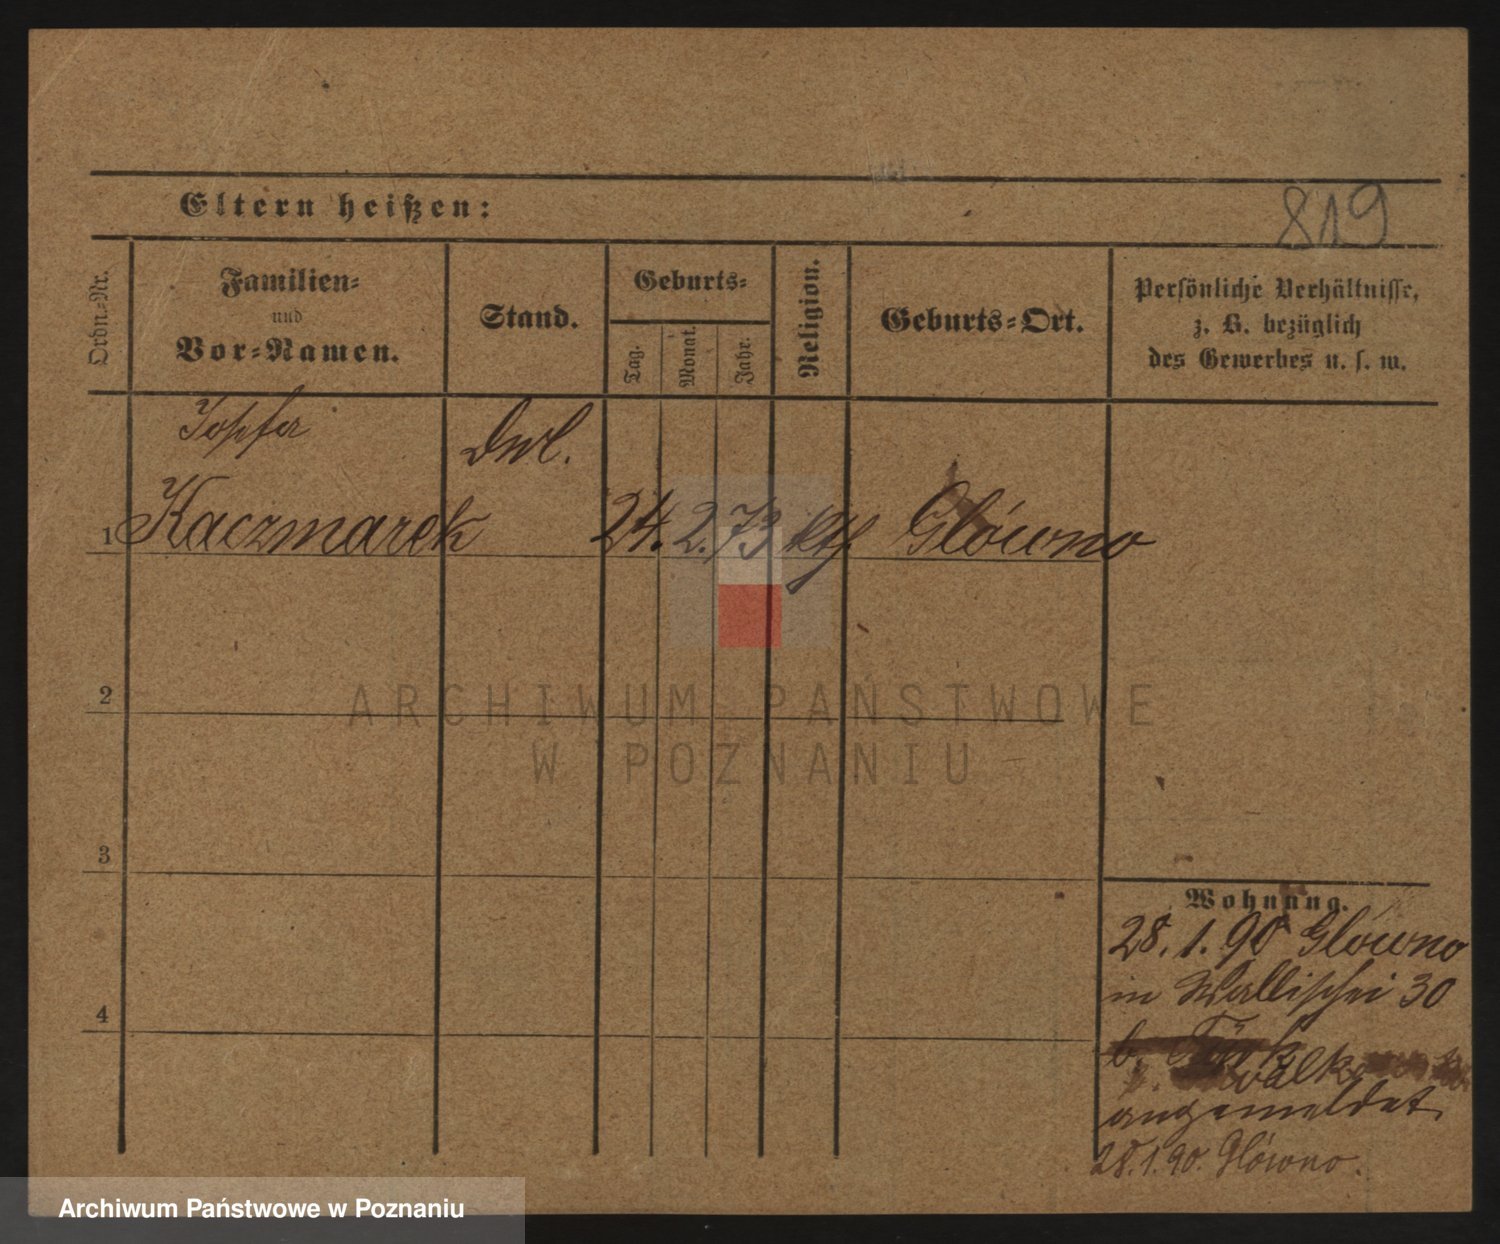 Eltern heißen:
819
Ordn.-Nr.
Familien-
und
Vor-Namen.
Stand.
Geburts-
Tag.
Monat.
Jahr.
Religion.
Geburts-Ort.
Persönliche Verhältnisse,
z. B. bezüglich
des Gewerbes u. s. w.
1 Kaczmarek 24. 2. 73 kth. Główno
2
3
4
Wohnung.
28. 1. 90 Główno
in Wallischei 30
b.
angemeldet
28. 1. 90. Główno.
ARCHIWUM PAŃSTWOWE
W POZNANIU
Archiwum Państwowe w Poznaniu